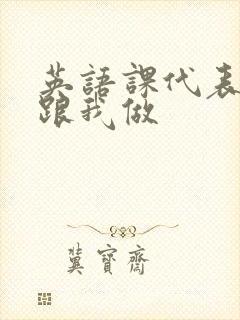 英語課代表
跟我做
冀寶齋